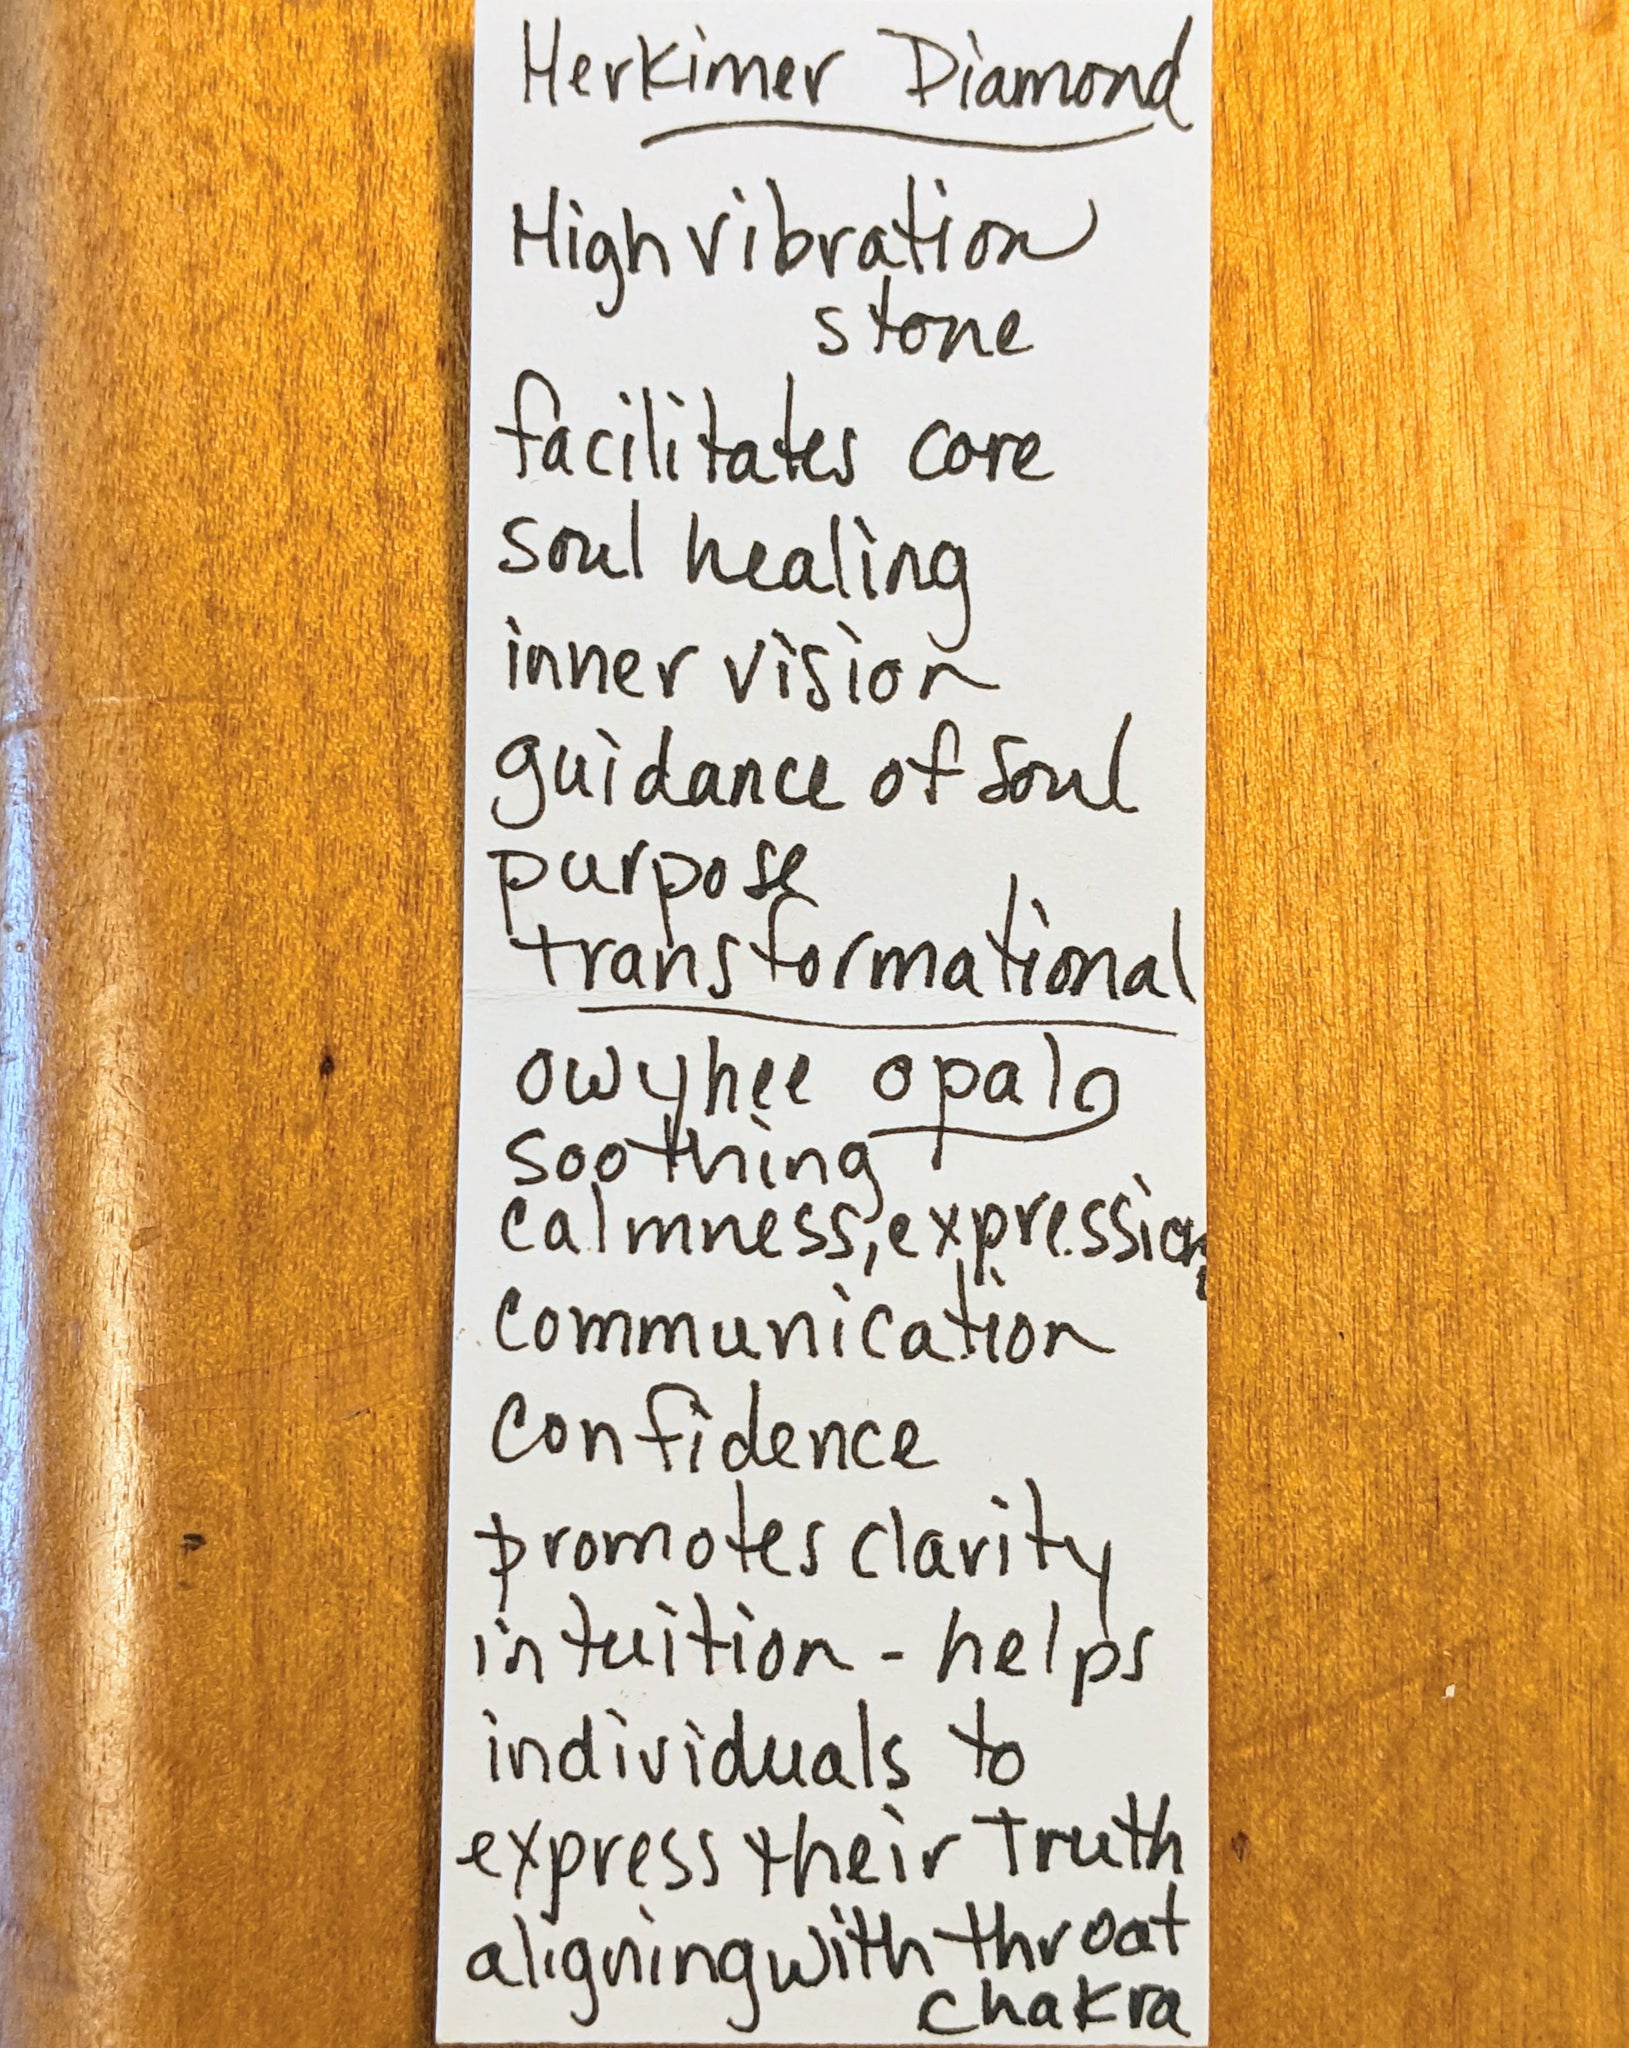 Herkimer Diamond
High vibration
stone
facilitates core
soul healing
inner vision
guidance of soul
purpose
transformational
owyhee opal
soothing
calmness, expression,
communication
confidence
promotes clarity
intuition - helps
individuals to
express their truth
aligning with throat
chakra